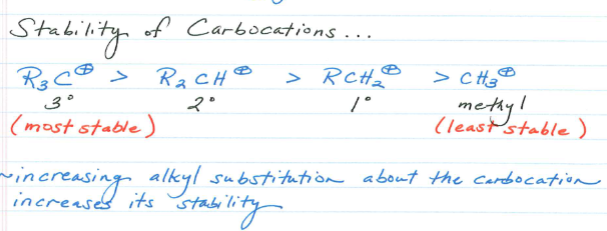 Stability of Carbocations...
R₃C⊕ > R₂CH⊕ > RCH₂⊕ > CH₃⊕
3° 2° 1° methyl
(most stable) (least stable)
~increasing alkyl substitution about the carbocation
increases its stability